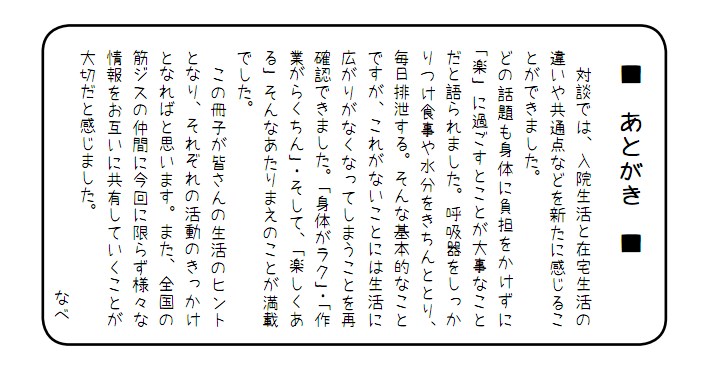 ■ あとがき ■
対談では、入院生活と在宅生活の
違いや共通点などを新たに感じるこ
とができました。
どの話題も身体に負担をかけずに
「楽」に過ごすとことが大事なこと
だと語られました。呼吸器をしっか
りつけ食事や水分をきちんととり、
毎日排泄する。そんな基本的なこと
ですが、これがないことには生活に
広がりがなくなってしまうことを再
確認できました。「身体がラク」・「作
業がらくちん」・そして、「楽しくあ
る」そんなあたりまえのことが満載
でした。
この冊子が皆さんの生活のヒント
となり、それぞれの活動のきっかけ
となればと思います。また、全国の
筋ジスの仲間に今回に限らず様々な
情報をお互いに共有していくことが
大切だと感じました。
なべ